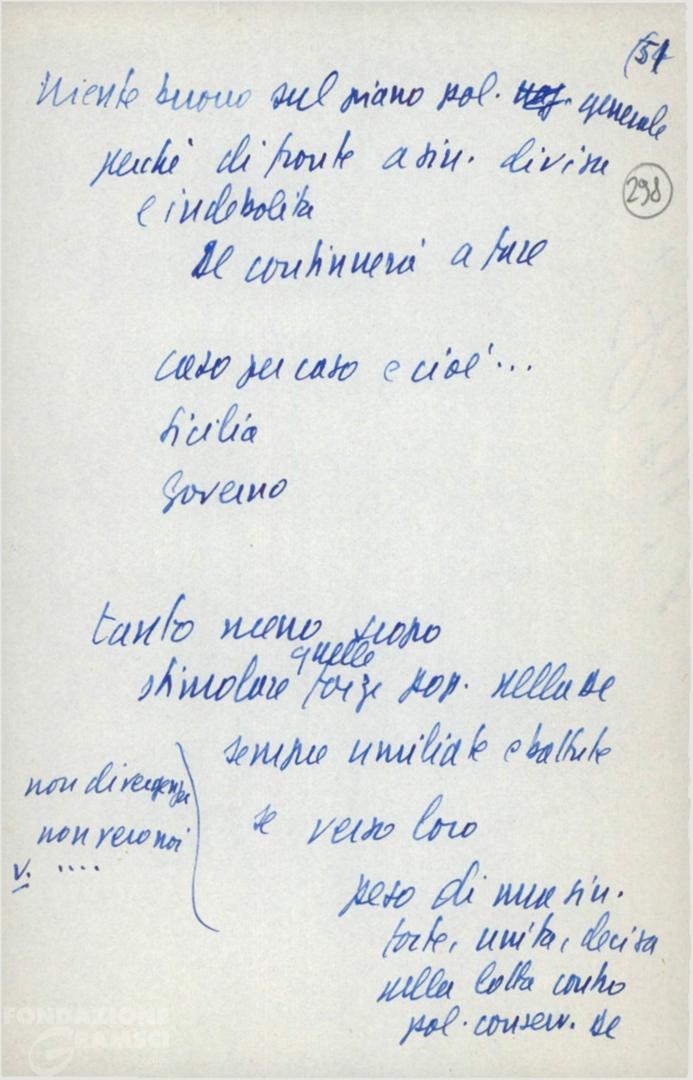 (51
niente buono sul piano pol. generale
298
perché di fronte a sin. divisa
e indebolita
DC continuerà a fare
caso per caso e cioè...
Sicilia
Governo
tanto meno scopo
quelle
stimolare forze pop. nella DC
sempre umiliate e battute
non divergenze
se verso loro
non vero noi
v. ....
peso di una sin.
forte, unita, decisa
nella lotta contro
pol. conserv. DC
FONDAZIONE
GRAMSCI